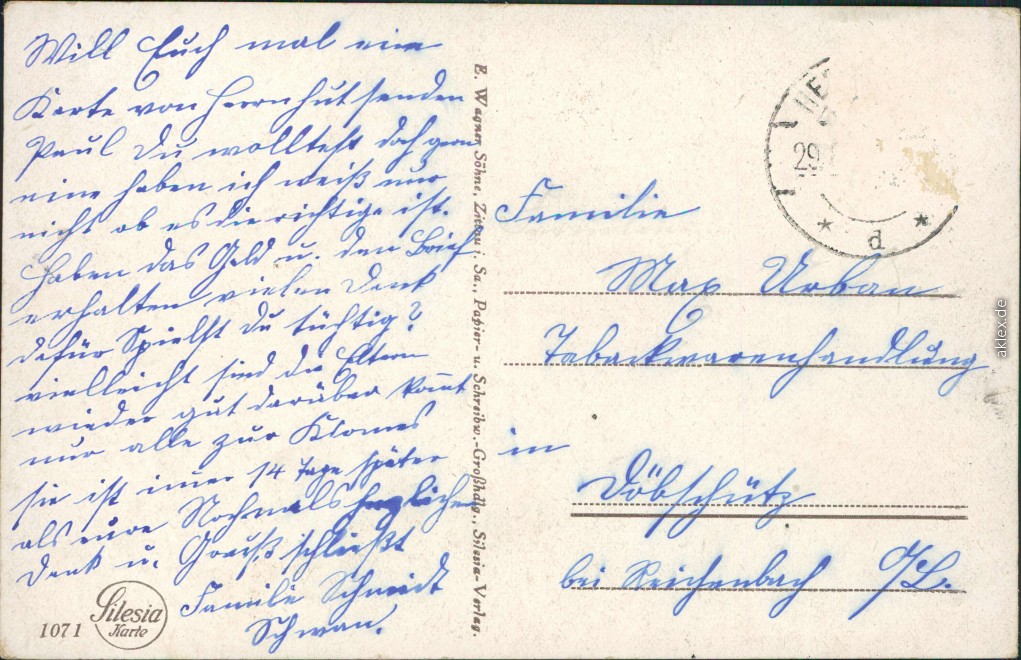 Will Euch mal eine
Karte von Herrnhut senden
Paul Du wolltest doch gern
eine haben ich weiß nur
nicht ob es die richtige ist.
Haben das Geld u. den Brief
erhalten vielen Dank
dafür Spielst Du tüchtig?
vielleicht sind die Eltern
wieder gut darüber kommt
nur alle zur Klomes
sie ist imer 14 Tage später
als eure Nochmals herzlichen
Dank u. Gruß schließt
Familie Schmidt
Schwan.
1071
Silesia
Karte
E. Wagner Söhne, Zittau i. Sa., Papier- u. Schreibw.-Großhdlg., Silesia-Verlag.
29
* d *
Familie
Max Urban
Tabackwarenhandlung
in
Döbschütz
bei Reichenbach O/L.
aklex.de